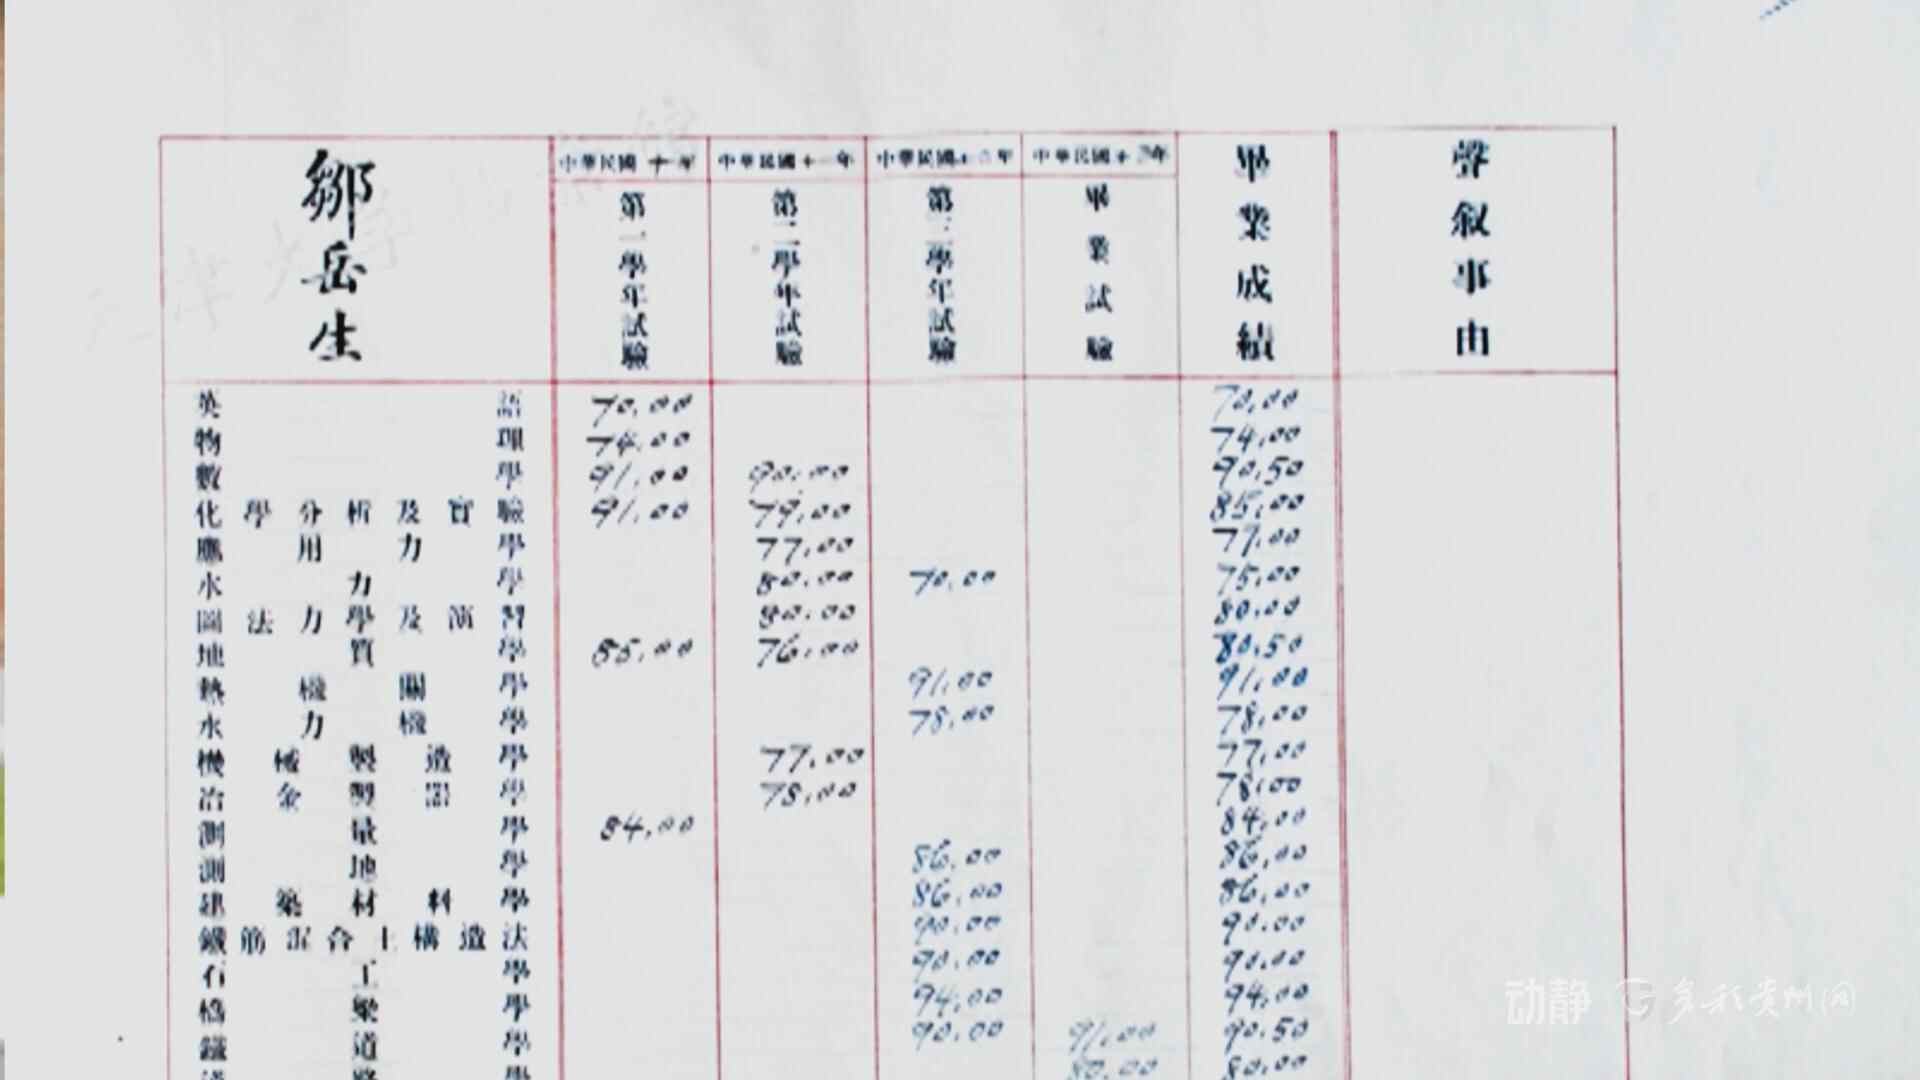 鄒岳生
中華民國十年 第一學年試驗
中華民國十一年 第二學年試驗
中華民國十二年 第三學年試驗
中華民國十 年 畢業試驗
畢業成績
聲叙事由
英語 70.00 70.00
物理 74.00 74.00
數學 91.00 90.00 90.50
化學分析及實驗 91.00 79.00 85.00
應用力學 77.00 77.00
水力學 80.00 70.00 75.00
圖法力學及演習 80.00 80.00
地質學 85.00 76.00 80.50
熱機關學 91.00 91.00
水力機學 78.00 78.00
機械製造學 77.00 77.00
冶金製器學 78.00 78.00
測量學 84.00 84.00
測地學 86.00 86.00
建築材料學 86.00 86.00
鐵筋混合土構造法 90.00 90.00
石工學 90.00 90.00
橋梁學 94.00 94.00
鐵道學 90.00 91.00 90.50
80.00 80.00
动静 多彩贵州网